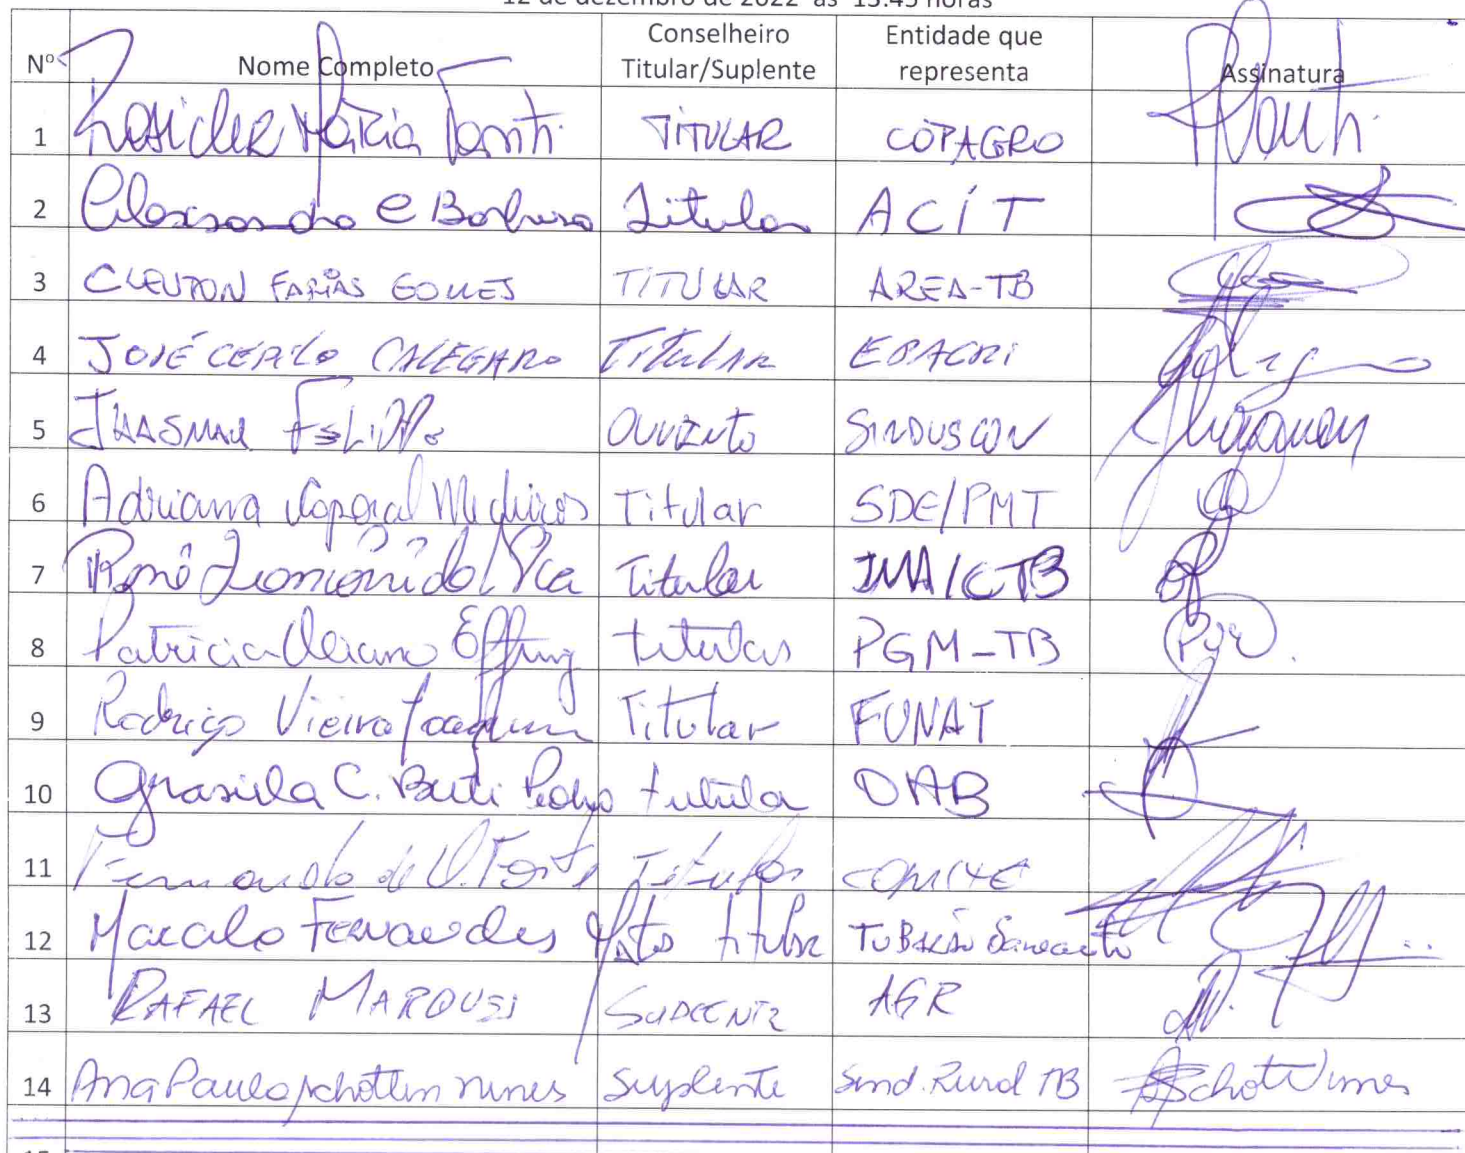 12 de dezembro de 2022 às 13:45 horas
Nº Nome Completo Conselheiro Titular/Suplente Entidade que representa Assinatura
1 Rosicler Maria Fanti TITULAR COPAGRO
2 Alexsandro C Barbosa Titular ACIT
3 CLEUTON FARIAS GOMES TITULAR AREA-TB
4 JOSÉ CERILO CALEGARO Titular EPAGRI
5 JHASMAN FELIPPE OUVINTE SINDUSCON
6 Adriana Caporal Medeiros Titular SDE/PMT
7 Titular IMA/CTB
8 Patricia Uliano Effting titular PGM-TB
9 Rodrigo Vieira Joaquim Titular FUNAT
10 Grasiela C. Pedro titular OAB
11 Fernando de Titular COMITÊ
12 Marcelo Fernandes Matos titular TUBARÃO Saneamento
13 RAFAEL MARQUES SUPLENTE AGR
14 Ana Paula schotten nunes suplente Sind. Rural TB ASchotNunes